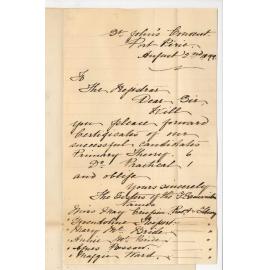 St. John's Convent
Port Pirie
August 2nd 1899
To
The Registrar
Dear Sir
Will
you please forward
Certificates of our
successful candidates
Primary Theory 6
Do Practical 1
and oblige
Yours sincerely
The Sisters of the
Names
Miss May
Gwendoline
Mary Mc Bride
Annie Mc Bride
Agnes
Maggie Ward